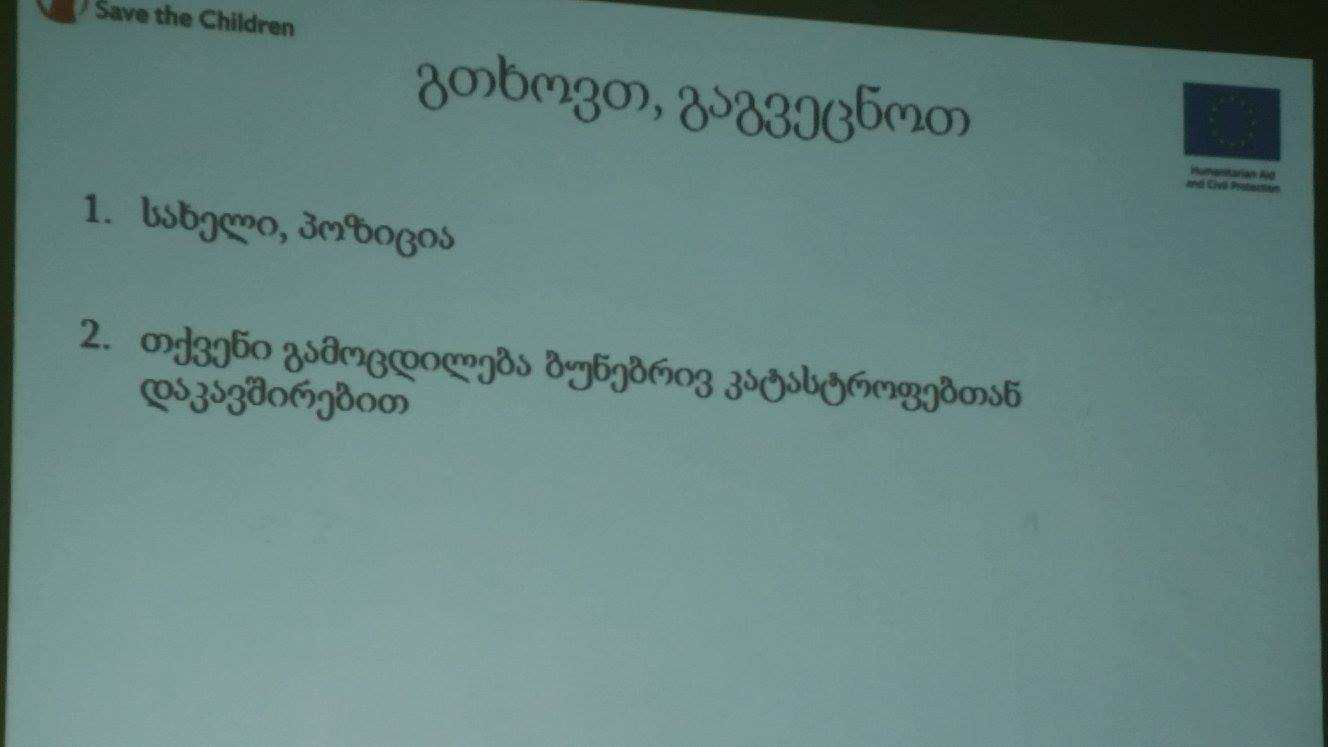 Save the Children
გთხოვთ, გაგვეცნოთ
Humanitarian Aid
and Civil Protection
1. სახელი, პოზიცია
2. თქვენი გამოცდილება ბუნებრივ კატასტროფებთან
დაკავშირებით